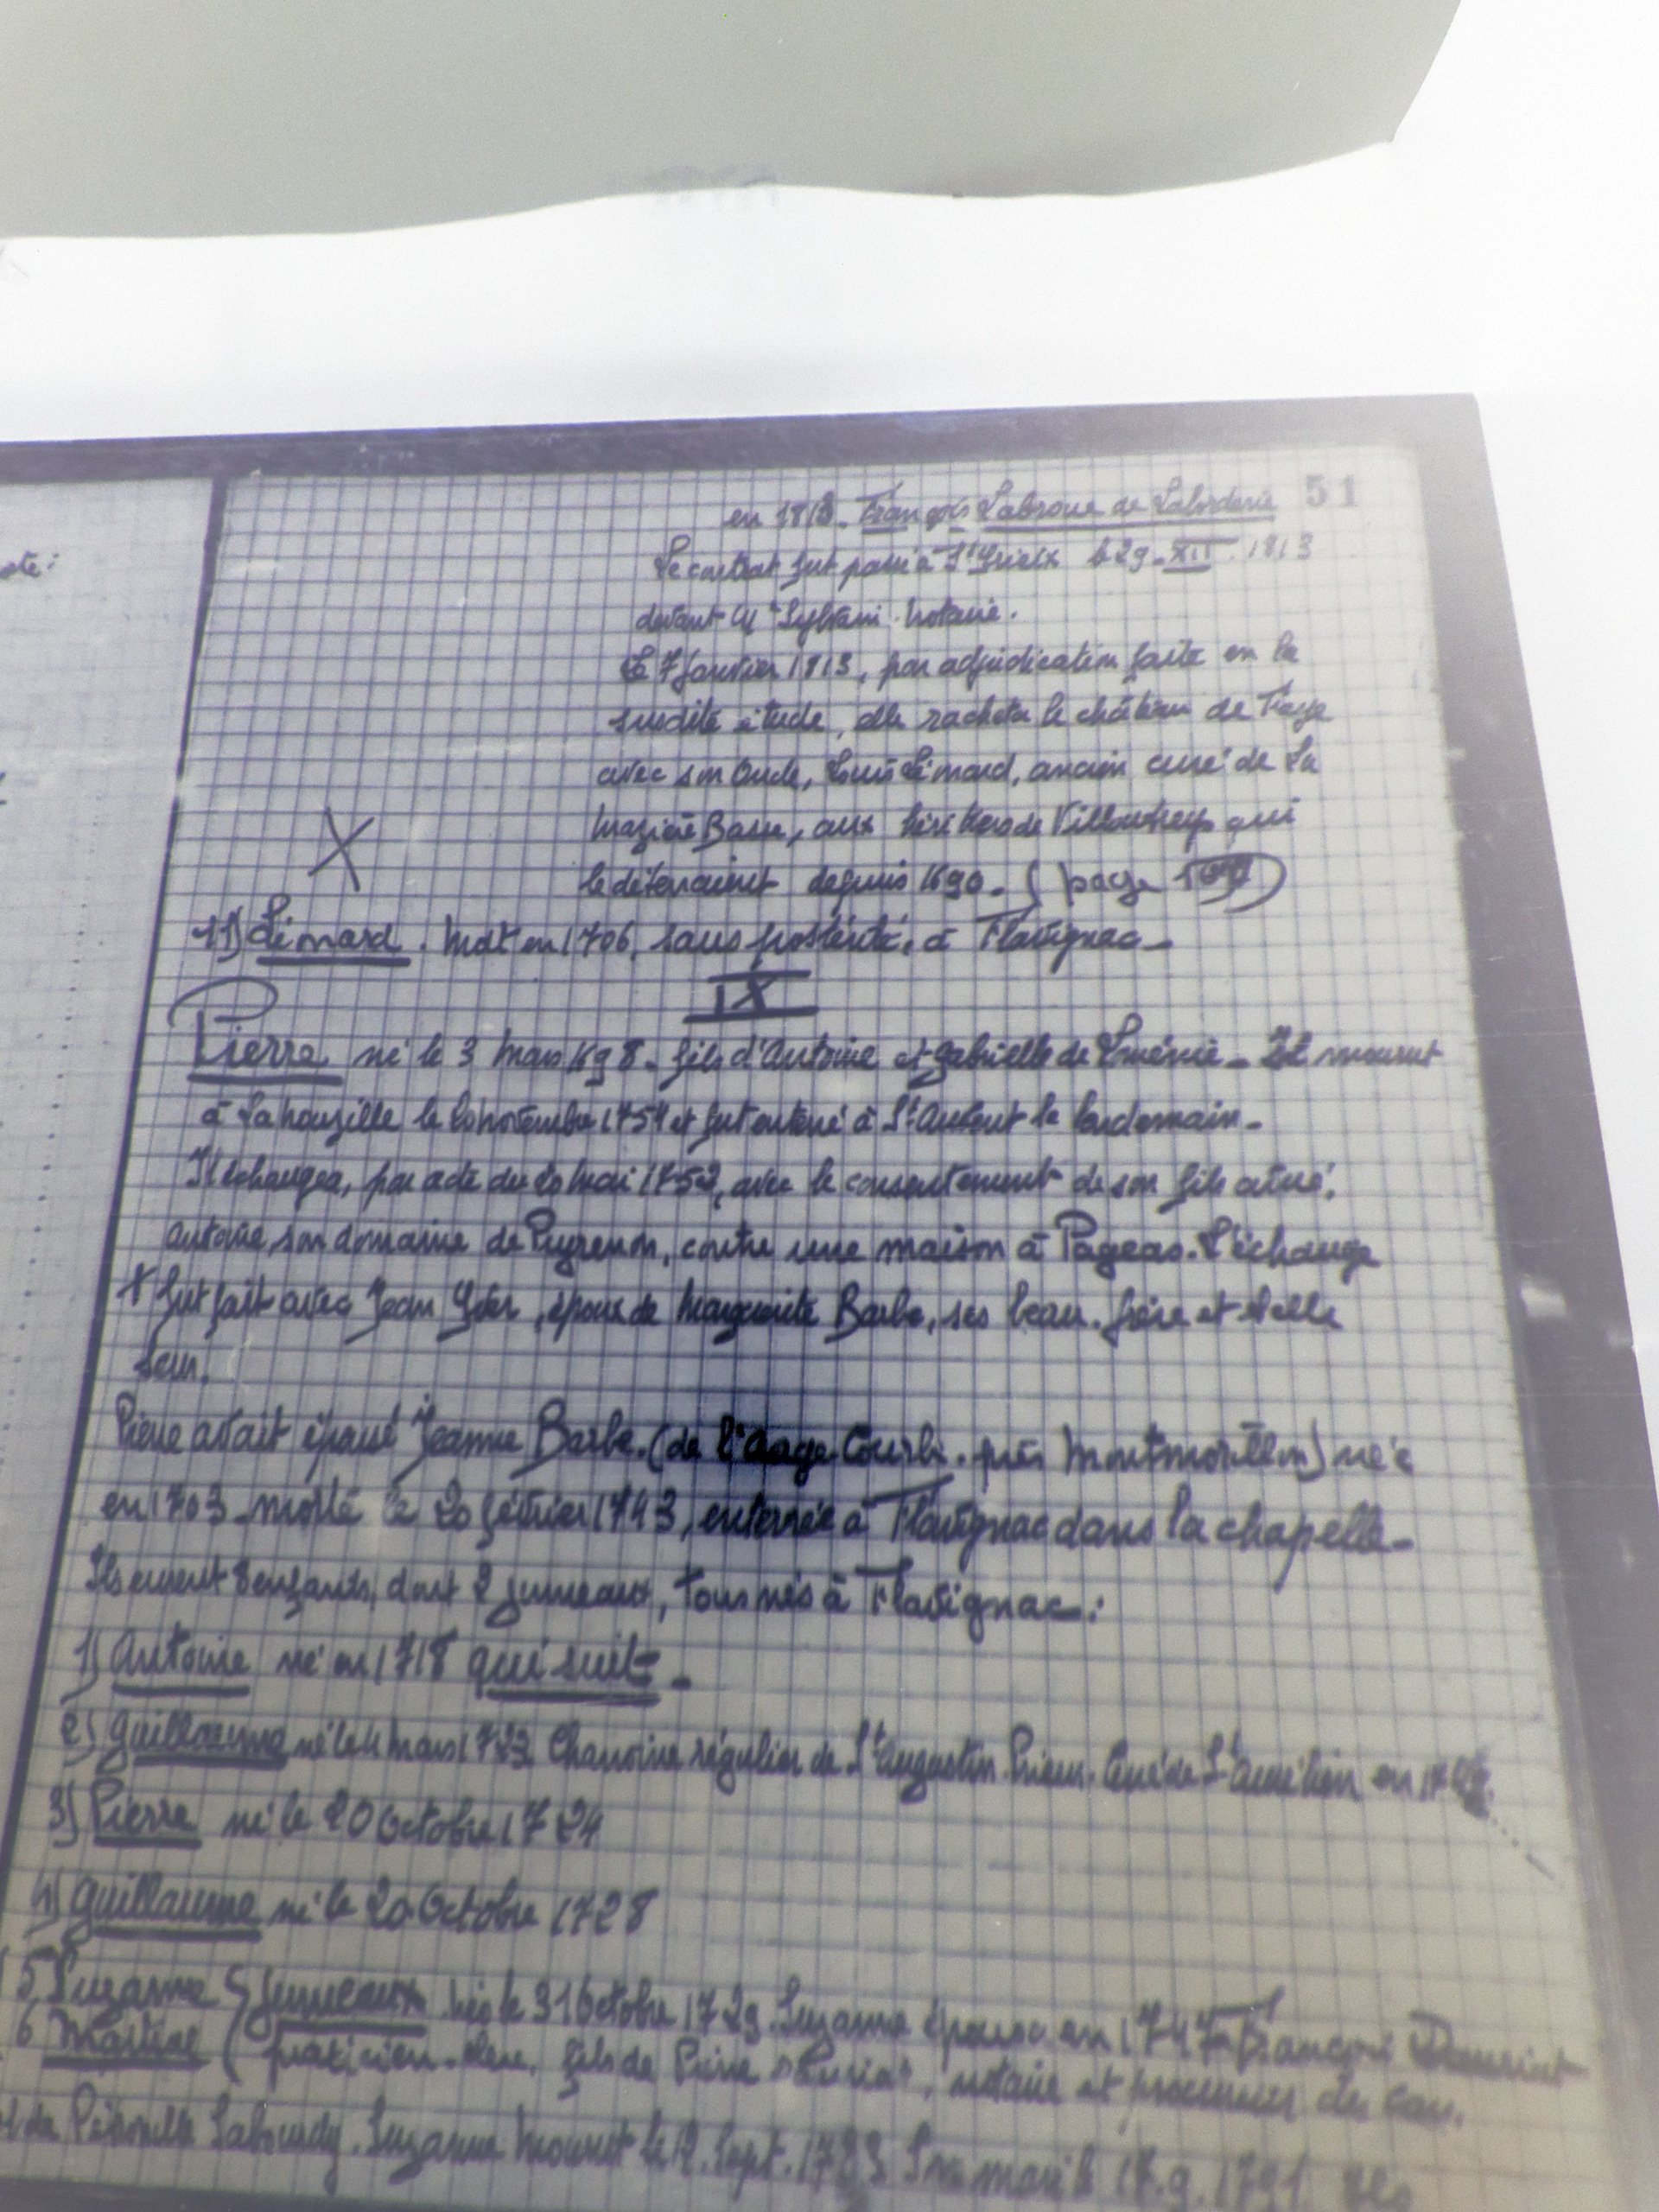 51
en 1813 - François Labroue de Laborderie
Le contrat fut passé à St Yrieix le 29 - XII - 1813
devant Me notaire.
Le 7 Janvier 1813, par adjudication faite en la
susdite étude, elle racheta le château de
avec son Oncle, Louis Léonard, ancien curé de La
Basse, aux héritiers de qui
le détenaient depuis 1690 - ( page
X
11) Léonard . Mort en 1706, sans postérité, à Flavignac -
IX
Pierre né le 3 Mars 1698 - fils d'Antoine et Gabrielle de - Il mourut
à le novembre 1754 et fut enterré à St Aubert le lendemain -
Il échangea, par acte du 20 Mai 1752, avec le consentement de son fils aîné,
Antoine, son domaine de contre une maison à Pageas. L'échange
+ fut fait avec Jean , époux de Marguerite Barbe, ses beau-frère et belle
sœur.
Pierre avait épousé Jeanne Barbe. (de l'Aage Courbe. près Montmorillon) née
en 1703 - morte le 20 février 1743, enterrée à Flavignac dans la chapelle -
Ils eurent 8 enfants, dont 2 jumeaux, tous nés à Flavignac :
1) Antoine né en 1718 qui suit -
2) Guillaume né le 4 mars 1723 Chanoine régulier de St Augustin. Prieur. Curé de St en
3) Pierre né le 20 Octobre 1724
4) Guillaume né le 20 Octobre 1728
5 Suzanne { Jumeaux . nés le 31 Octobre 1729. Suzanne épousa en 1747 François
6 Martial ( praticien. fils de Pierre , notaire et procureur
et de Pétronille . Suzanne mourut le 12. Sept. 1783 Son mari le 17.9.1791